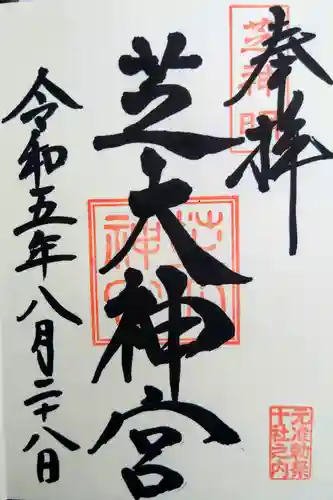 奉拝
芝神明
芝大神宮
令和五年八月二十八日
元准勅祭
十社之内